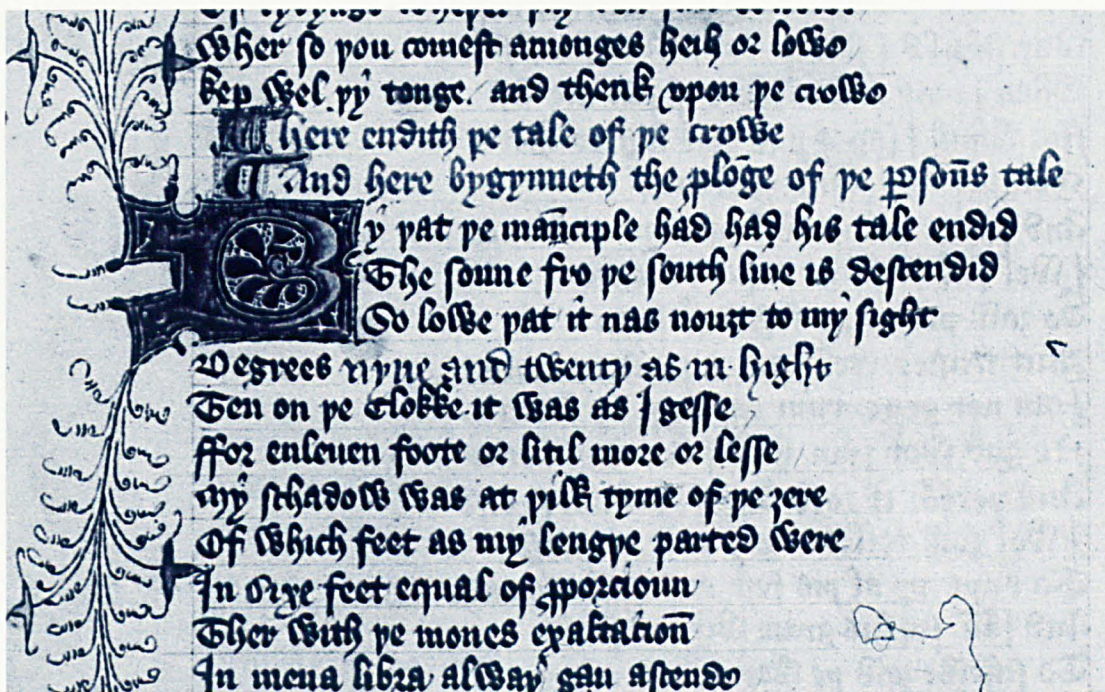 Wher so þou comest amonges heih or lowe
kep wel þy tonge. and thenk vpon þe crowe
¶ here endith þe tale of þe crowe
¶ And here bygynneth the ꝓloḡe of þe ꝑsoūs tale
By þat þe māciple had had his tale endid
The sonne fro þe south line is descendid
So lowe þat it nas nouȝt to my sight
Degrees nyne and twenty as in hight
Ten on þe Clokke it was as I gesse
ffor enleuen foote or litil more or lesse
My schadow was at þilk tyme of þe ȝere
Of which feet as my lengþe parted were
In sixe feet equal of ꝓporcioun
Ther with þe mones exaltacioū
In mena libra alway gan ascende